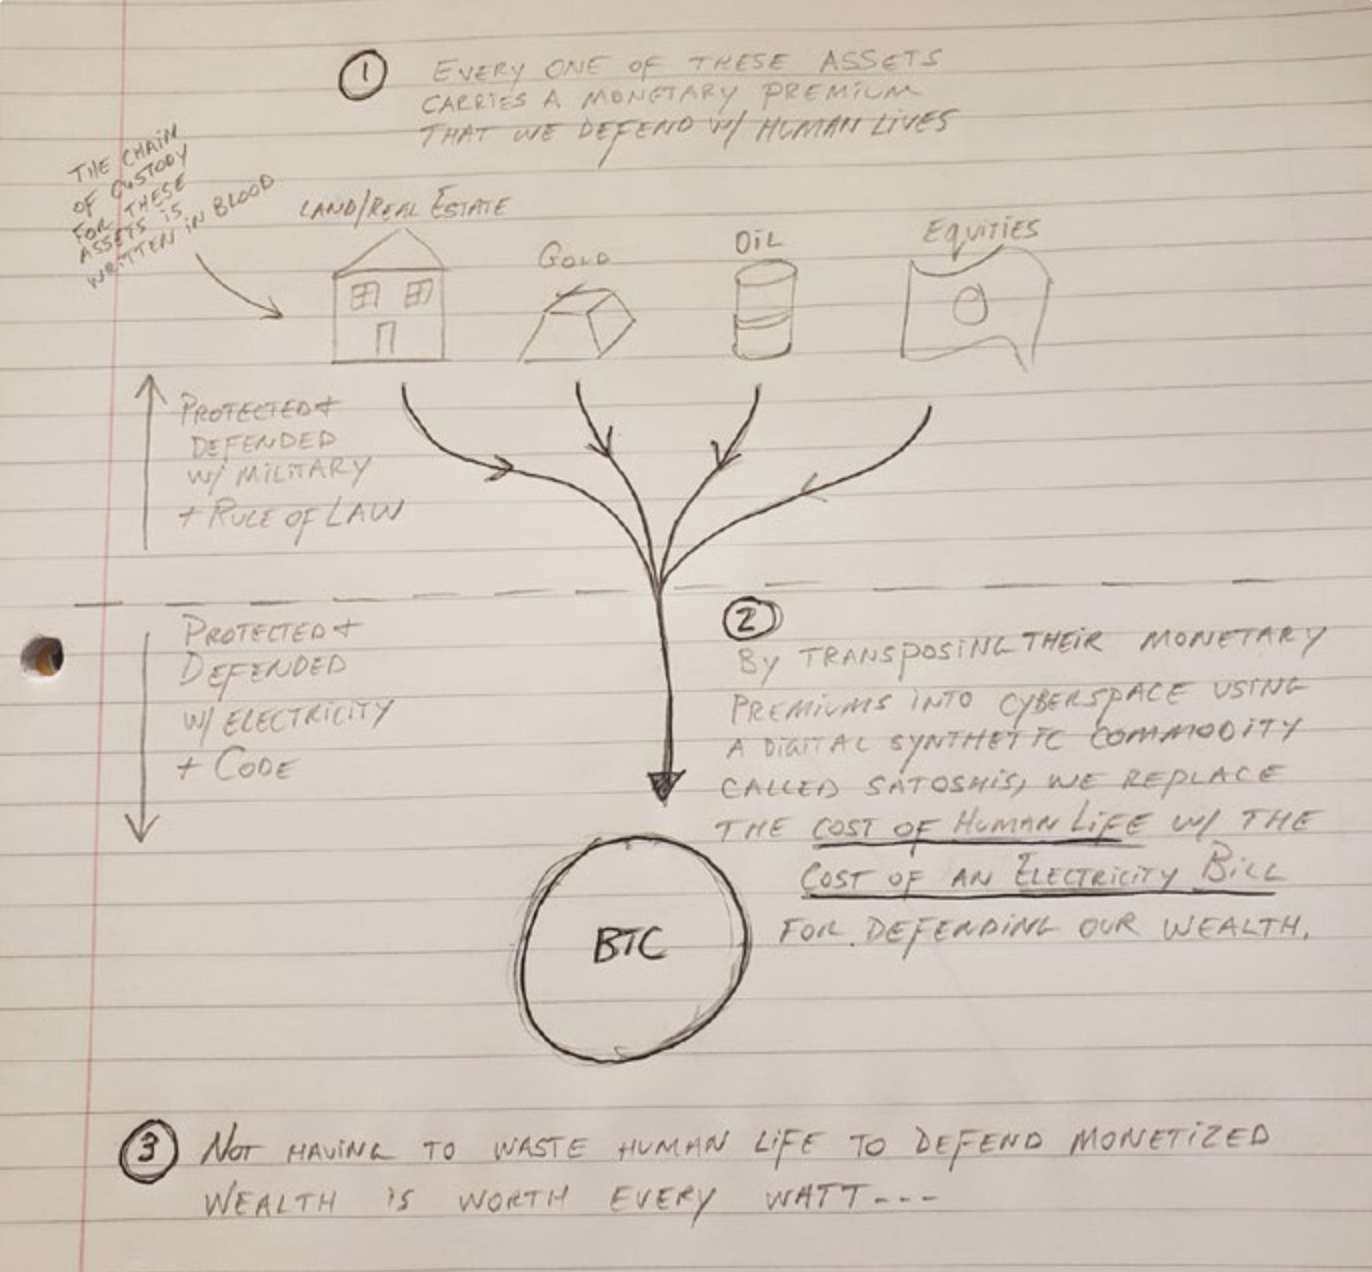 1
EVERY ONE OF THESE ASSETS
CARRIES A MONETARY PREMIUM
THAT WE DEFEND W/ HUMAN LIVES
THE CHAIN
OF CUSTODY
FOR THESE
ASSETS IS
WRITTEN IN BLOOD
LAND/REAL ESTATE
GOLD
OIL
EQUITIES
PROTECTED +
DEFENDED
W/ MILITARY
+ RULE OF LAW
PROTECTED +
DEFENDED
W/ ELECTRICITY
+ CODE
2
BY TRANSPOSING THEIR MONETARY
PREMIUMS INTO CYBERSPACE USING
A DIGITAL SYNTHETIC COMMODITY
CALLED SATOSHIS, WE REPLACE
THE COST OF HUMAN LIFE W/ THE
COST OF AN ELECTRICITY BILL
FOR DEFENDING OUR WEALTH.
BTC
3 NOT HAVING TO WASTE HUMAN LIFE TO DEFEND MONETIZED
WEALTH IS WORTH EVERY WATT---